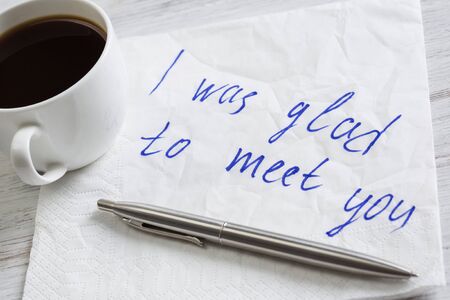 I was glad
to meet you